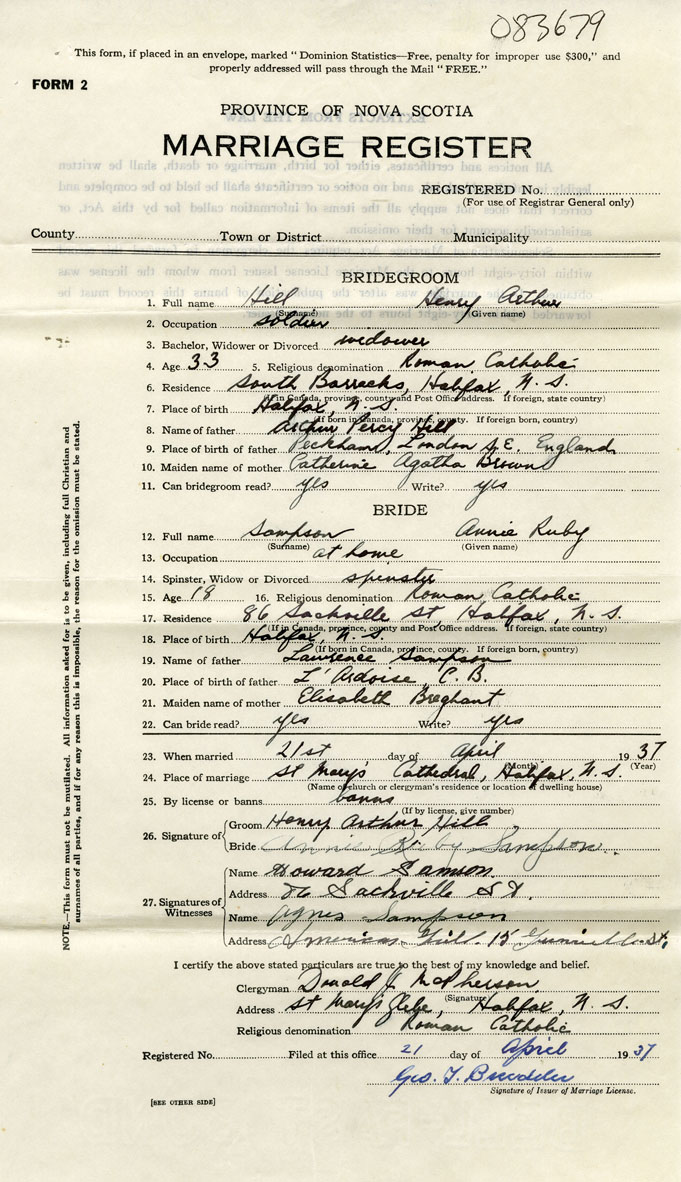 083679
This form, if placed in an envelope, marked "Dominion Statistics—Free, penalty for improper use $300," and
properly addressed will pass through the Mail "FREE."
FORM 2
PROVINCE OF NOVA SCOTIA
MARRIAGE REGISTER
REGISTERED No.
(For use of Registrar General only)
County Town or District Municipality
BRIDEGROOM
1. Full name Hill Henry Arthur
(Surname) (Given name)
2. Occupation soldier
3. Bachelor, Widower or Divorced widower
4. Age 33 5. Religious denomination Roman Catholic
6. Residence South Barracks, Halifax, N. S.
(If in Canada, province, county and Post Office address. If foreign, state country)
7. Place of birth Halifax, N. S.
(If born in Canada, province, county. If foreign born, country)
8. Name of father Arthur Percy Hill
9. Place of birth of father Peckham, London S.E. England
10. Maiden name of mother Catherine Agatha Brown
11. Can bridegroom read? yes Write? yes
BRIDE
12. Full name Sampson Annie Ruby
(Surname) (Given name)
13. Occupation at home
14. Spinster, Widow or Divorced spinster
15. Age 18 16. Religious denomination Roman Catholic
17. Residence 86 Sackville St, Halifax, N. S.
(If in Canada, province, county and Post Office address. If foreign, state country)
18. Place of birth Halifax, N. S.
(If born in Canada, province, county. If foreign born, country)
19. Name of father Lawrence Sampson
20. Place of birth of father L'Ardoise, C. B.
21. Maiden name of mother Elisabeth
22. Can bride read? yes Write? yes
23. When married 21st day of April 1937
(Month) (Year)
24. Place of marriage St Mary's Cathedral, Halifax, N. S.
(Name of church or clergyman's residence or location of dwelling house)
25. By license or banns banns
(If by license, give number)
26. Signature of Groom Henry Arthur Hill
Bride Annie Ruby Sampson
27. Signatures of Witnesses Name Howard Samson
Address 86 Sackville St.
Name Agnes Sampson
Address 15 St.
I certify the above stated particulars are true to the best of my knowledge and belief.
Clergyman Donald J. McPherson
(Signature)
Address St Mary's Glebe, Halifax, N. S.
Religious denomination Roman Catholic
Registered No. Filed at this office 21 day of April 1937
Geo. T.
Signature of Issuer of Marriage License.
[SEE OTHER SIDE]
NOTE.—This form must not be mutilated. All information asked for is to be given, including full Christian and
surnames of all parties, and if for any reason this is impossible, the reason for the omission must be stated.